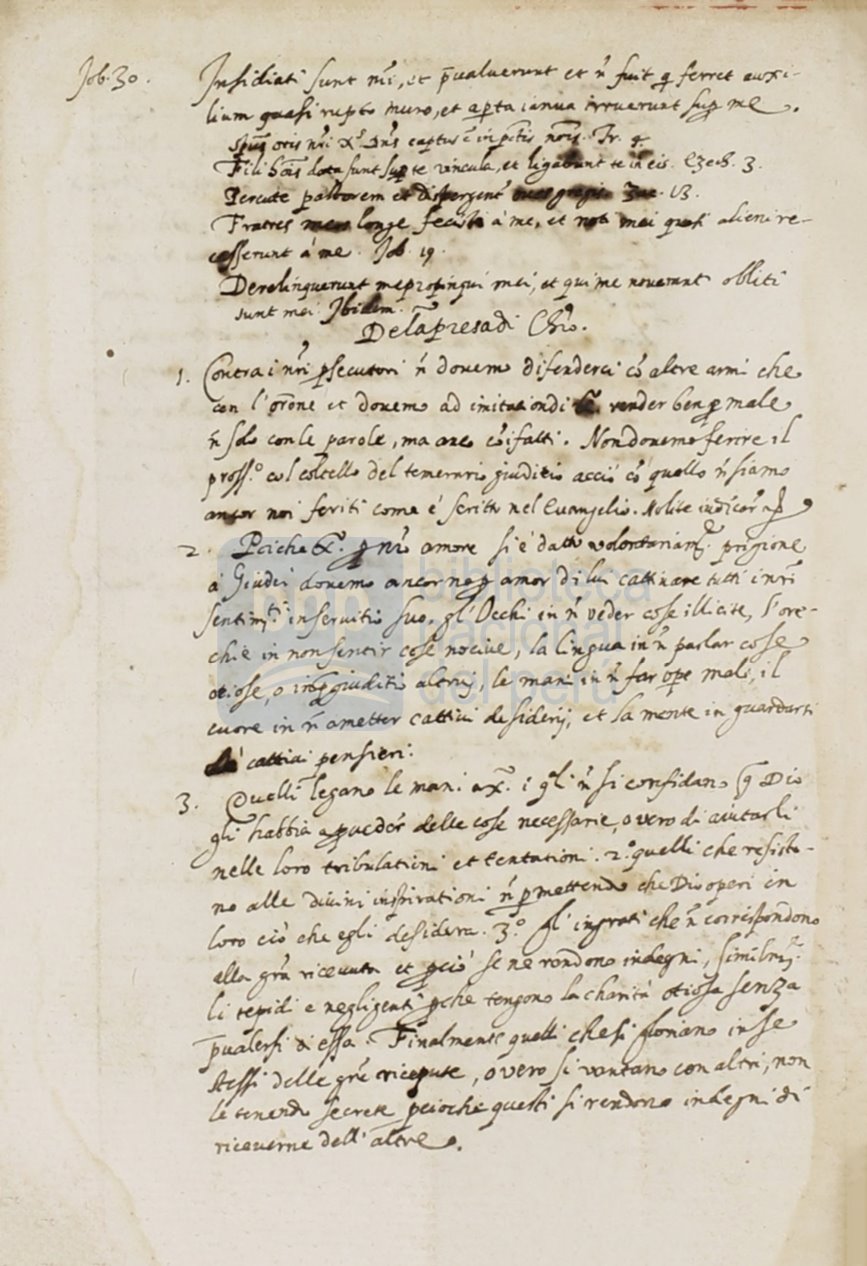 Job. 30.
Insidiati sunt mĩ, et p̃ualuerunt et ñ fuit q ferret auxi-
lium quasi rupto muro, et apta ianua irruerunt sup me.
spũs oris nr̃i X.s Dñs captus ẽ in pctis nr̃is. Tr. 4
Fili hõis data sunt sup te vincula, et ligabunt te in eis. Ezech. 3.
Percute pastorem et dispergent^r 13.
Fratres meos longe fecisti à me, et noti mei quasi alieni re-
cesserunt á me. Job. 19.
Derelinquerunt me propinqui mei, et qui me nouerant obliti
sunt mei. Ibidem.
Dela presa di Chr̃o.
1. Contra i nr̃i psecutori ñ douemo difenderci cõ altre armi che
con l'orõne et douemo ad imitationdi render ben p male
ñ solo con le parole, ma anco cõ i fatti. Non douemo ferire il
pross.o col coltello del temerario giuditio acciò cõ quello ñ siamo
ancor noi feriti come é scritto nel Euangelio. Nolite
2. Pciche X. p nr̃o amore si é datto volontariam.te prigione
a Giudei douemo ancor noi p amor di lui cattiuare tutti i nr̃i
sentim.ti in seruitio suo, gl'Occhi in ñ veder cose illicite, l'ore-
chie in non sentir cose nociue, la lingua in ñ parlar cose
otiose, o in pgiuditio altrui, le mani in ñ far ope male, il
cuore in ñ ametter cattiui desiderij, et la mente in guardarsi
da' cattiui pensieri.
3. Quelli legano le mani a X. i q̃li ñ si confidano q̃ Dio
gli habbia a proueder delle cose necessarie, o vero di aiutarli
nelle loro tribulationi et tentationi. 2.o quelli che resisto-
no alle diuini inspirationi ñ pmettendo che Dio operi in
loro ciò che egli desidera. 3.o gl'ingrati che ñ corrispondono
alla grã riceuuta et pciò se ne rendono indegni, similm.te
li tepidi e negligenti pche tengono la charità otiosa senza
p̃ualersi di essa. Finalmente quelli che si gloriano in se
stessi delle grẽ riceuute, o vero si vantano con altri, non
le tenendo secrete pcioche questi si rendono indegni di
riceuerne dell'altre.
biblioteca
nacional
del perú